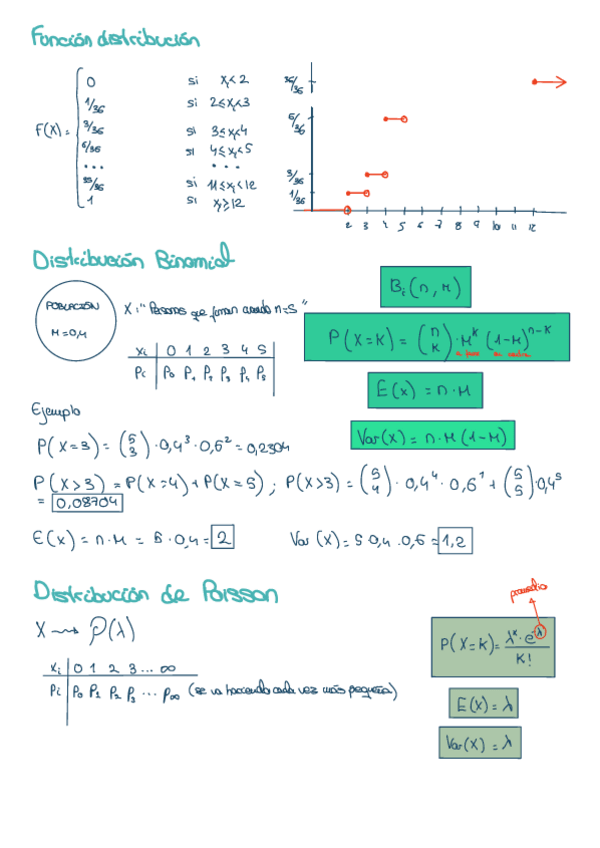 Función distribución
F(x) =
0 si x < 2
1/36 si 2 ≤ x < 3
3/36 si 3 ≤ x < 4
6/36 si 4 ≤ x < 5
... ...
35/36 si 11 ≤ x < 12
1 si x ≥ 12
36/36
6/36
3/36
1/36
2 3 4 5 6 7 8 9 10 11 12
Distribución Binomial
POBLACIÓN
M = 0,4
X: "Personas que fuman cuando n=5"
Xi 0 1 2 3 4 5
Pi P0 P1 P2 P3 P4 P5
Bi (n, M)
P(X=K) = (n K) · M^K (1-M)^n-K
a favor en contra
E(x) = n · M
Var(x) = n · M (1-M)
Ejemplo
P(X=3) = (5 3) · 0,4^3 · 0,6^2 = 0,2304
P(X>3) = P(X=4) + P(X=5) ; P(X>3) = (5 4) · 0,4^4 · 0,6^1 + (5 5) · 0,4^5
= 0,08704
E(x) = n · M = 5 · 0,4 = 2 Var (x) = 5 · 0,4 · 0,6 = 1,2
Distribución de Poisson
X ⟿ P(λ)
Xi 0 1 2 3 ... ∞
Pi P0 P1 P2 P3 ... P∞ (se va haciendo cada vez más pequeña)
promedio
P(X=K) = λ^K · e^-λ / K!
E(x) = λ
Var(x) = λ